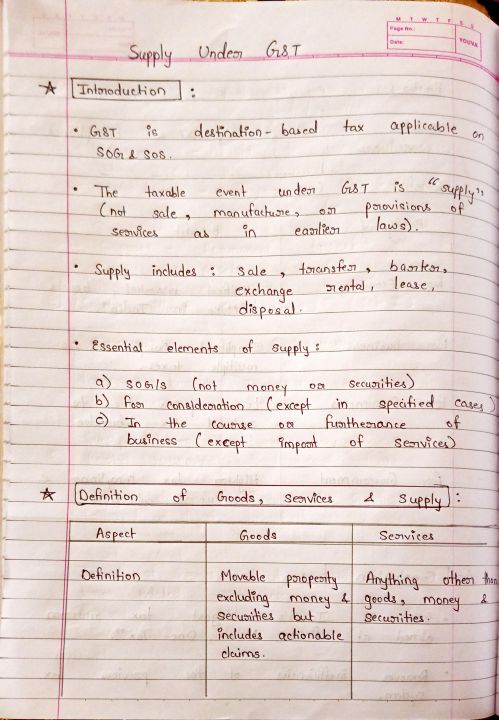 M T W T F S S
Page No.:
Date:
YOUVA
Supply Under GST
★ Introduction :
• GST is destination-based tax applicable on
SOG & SOS.
• The taxable event under GST is "supply"
(not sale, manufacture, or provisions of
services as in earlier laws).
• Supply includes : sale, transfer, barter,
exchange rental, lease,
disposal.
• Essential elements of supply :
a) SOG/S (not money or securities)
b) For consideration (except in specified cases)
c) In the course or furtherance of
business (except import of services)
★ Definition of Goods, Services & Supply :
Aspect Goods Services
Definition Movable property Anything other than
excluding money & goods, money &
securities but securities.
includes actionable
claims.